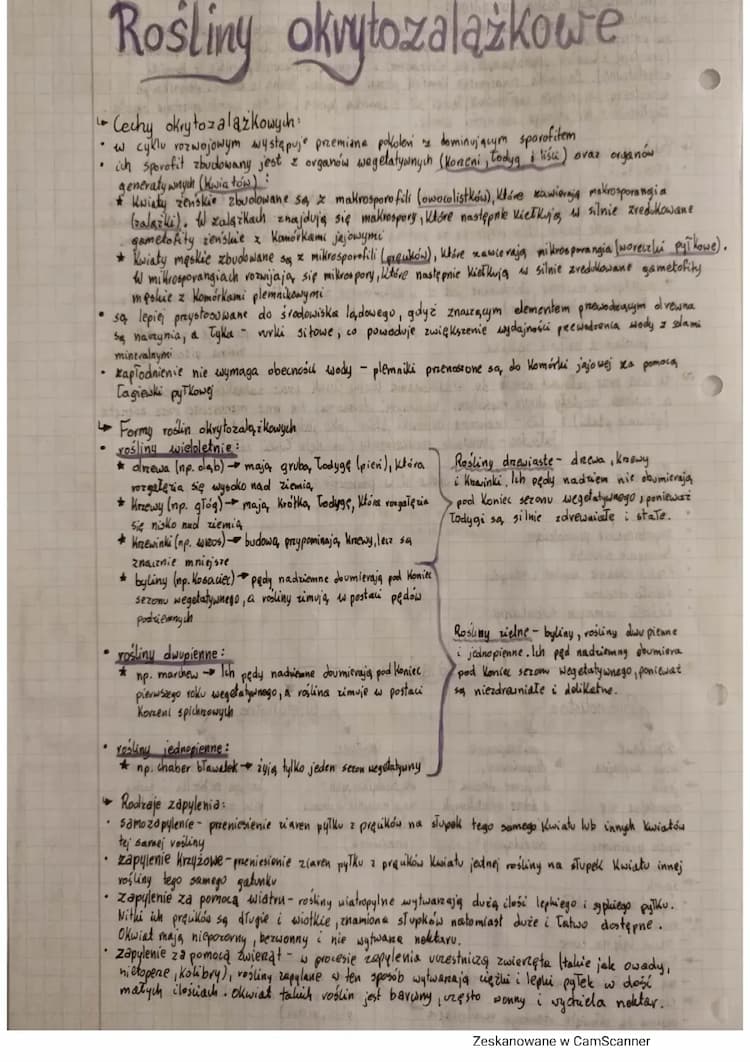 Rośliny okrytozalążkowe
↳ Cechy okrytozalążkowych:
• w cyklu rozwojowym występuje przemiana pokoleń z dominującym sporofitem
• ich sporofit zbudowany jest z organów wegetatywnych (korzeni, łodyg i liści) oraz organów
generatywnych (kwiatów):
★ Kwiaty żeńskie zbudowane są z makrosporofili (owocolistków), które zawierają makrosporangia
(zalążki). W zalążkach znajdują się makrospory, które następnie kiełkują w silnie zredukowane
gametofity żeńskie z komórkami jajowymi
★ Kwiaty męskie zbudowane są z mikrosporofili (pręcików), które zawierają mikrosporangia (woreczki pyłkowe).
W mikrosporangiach rozwijają się mikrospory, które następnie kiełkują w silnie zredukowane gametofity
męskie z komórkami plemnikowymi
• są lepiej przystosowane do środowiska lądowego, gdyż znaczącym elementem przewodzącym drewna
są naczynia, a łyka - rurki sitowe, co powoduje zwiększenie wydajności przewodzenia wody z solami
mineralnymi
• zapłodnienie nie wymaga obecności wody - plemniki przenoszone są do komórki jajowej za pomocą
łagiewki pyłkowej
↳ Formy roślin okrytozalążkowych
• rośliny wieloletnie:
★ drzewa (np. dąb) → mają grubą łodygę (pień), która
rozgałęzia się wysoko nad ziemią
★ krzewy (np. głóg) → mają krótką łodygę, która rozgałęzia
się nisko nad ziemią
★ krzewinki (np. wrzos) → budową przypominają krzewy, lecz są
znacznie mniejsze
★ byliny (np. kosaciec) → pędy nadziemne obumierają pod koniec
sezonu wegetatywnego, a rośliny zimują w postaci pędów
podziemnych
Rośliny drzewiaste - drzewa, krzewy
i krzewinki. Ich pędy nadziem nie obumierają
pod koniec sezonu wegetatywnego, ponieważ
łodygi są silnie zdrewniałe i stałe.
• rośliny dwupienne:
★ np. marchew → Ich pędy nadziemne obumierają pod koniec
pierwszego roku wegetatywnego, a roślina zimuje w postaci
korzeni spichrzowych
• rośliny jednopienne:
★ np. chaber bławatek → żyją tylko jeden sezon wegetatywny
Rośliny zielne - byliny, rośliny dwupienne
i jednopienne. Ich pęd nadziemny obumiera
pod koniec sezonu wegetatywnego, ponieważ
są niezdrewniałe i delikatne.
↳ Rodzaje zapylenia:
• samozapylenie - przeniesienie ziaren pyłku z pręcików na słupek tego samego kwiatu lub innych kwiatów
tej samej rośliny
• zapylenie krzyżowe - przeniesienie ziaren pyłku z pręcików kwiatu jednej rośliny na słupek kwiatu innej
rośliny tego samego gatunku
• zapylenie za pomocą wiatru - rośliny wiatropylne wytwarzają dużą ilość lepkiego i sypkiego pyłku.
Nitki ich pręcików są długie i wiotkie, znamiona słupków natomiast duże i łatwo dostępne.
Okwiat mają niepozorny, bezwonny i nie wytwarza nektaru.
• zapylenie za pomocą zwierząt - w procesie zapylenia uczestniczą zwierzęta (takie jak owady,
nietoperze, kolibry), rośliny zapylane w ten sposób wytwarzają ciężki i lepki pyłek w dość
małych ilościach. Okwiat takich roślin jest barwny, często wonny i wydziela nektar.
Zeskanowane w CamScanner